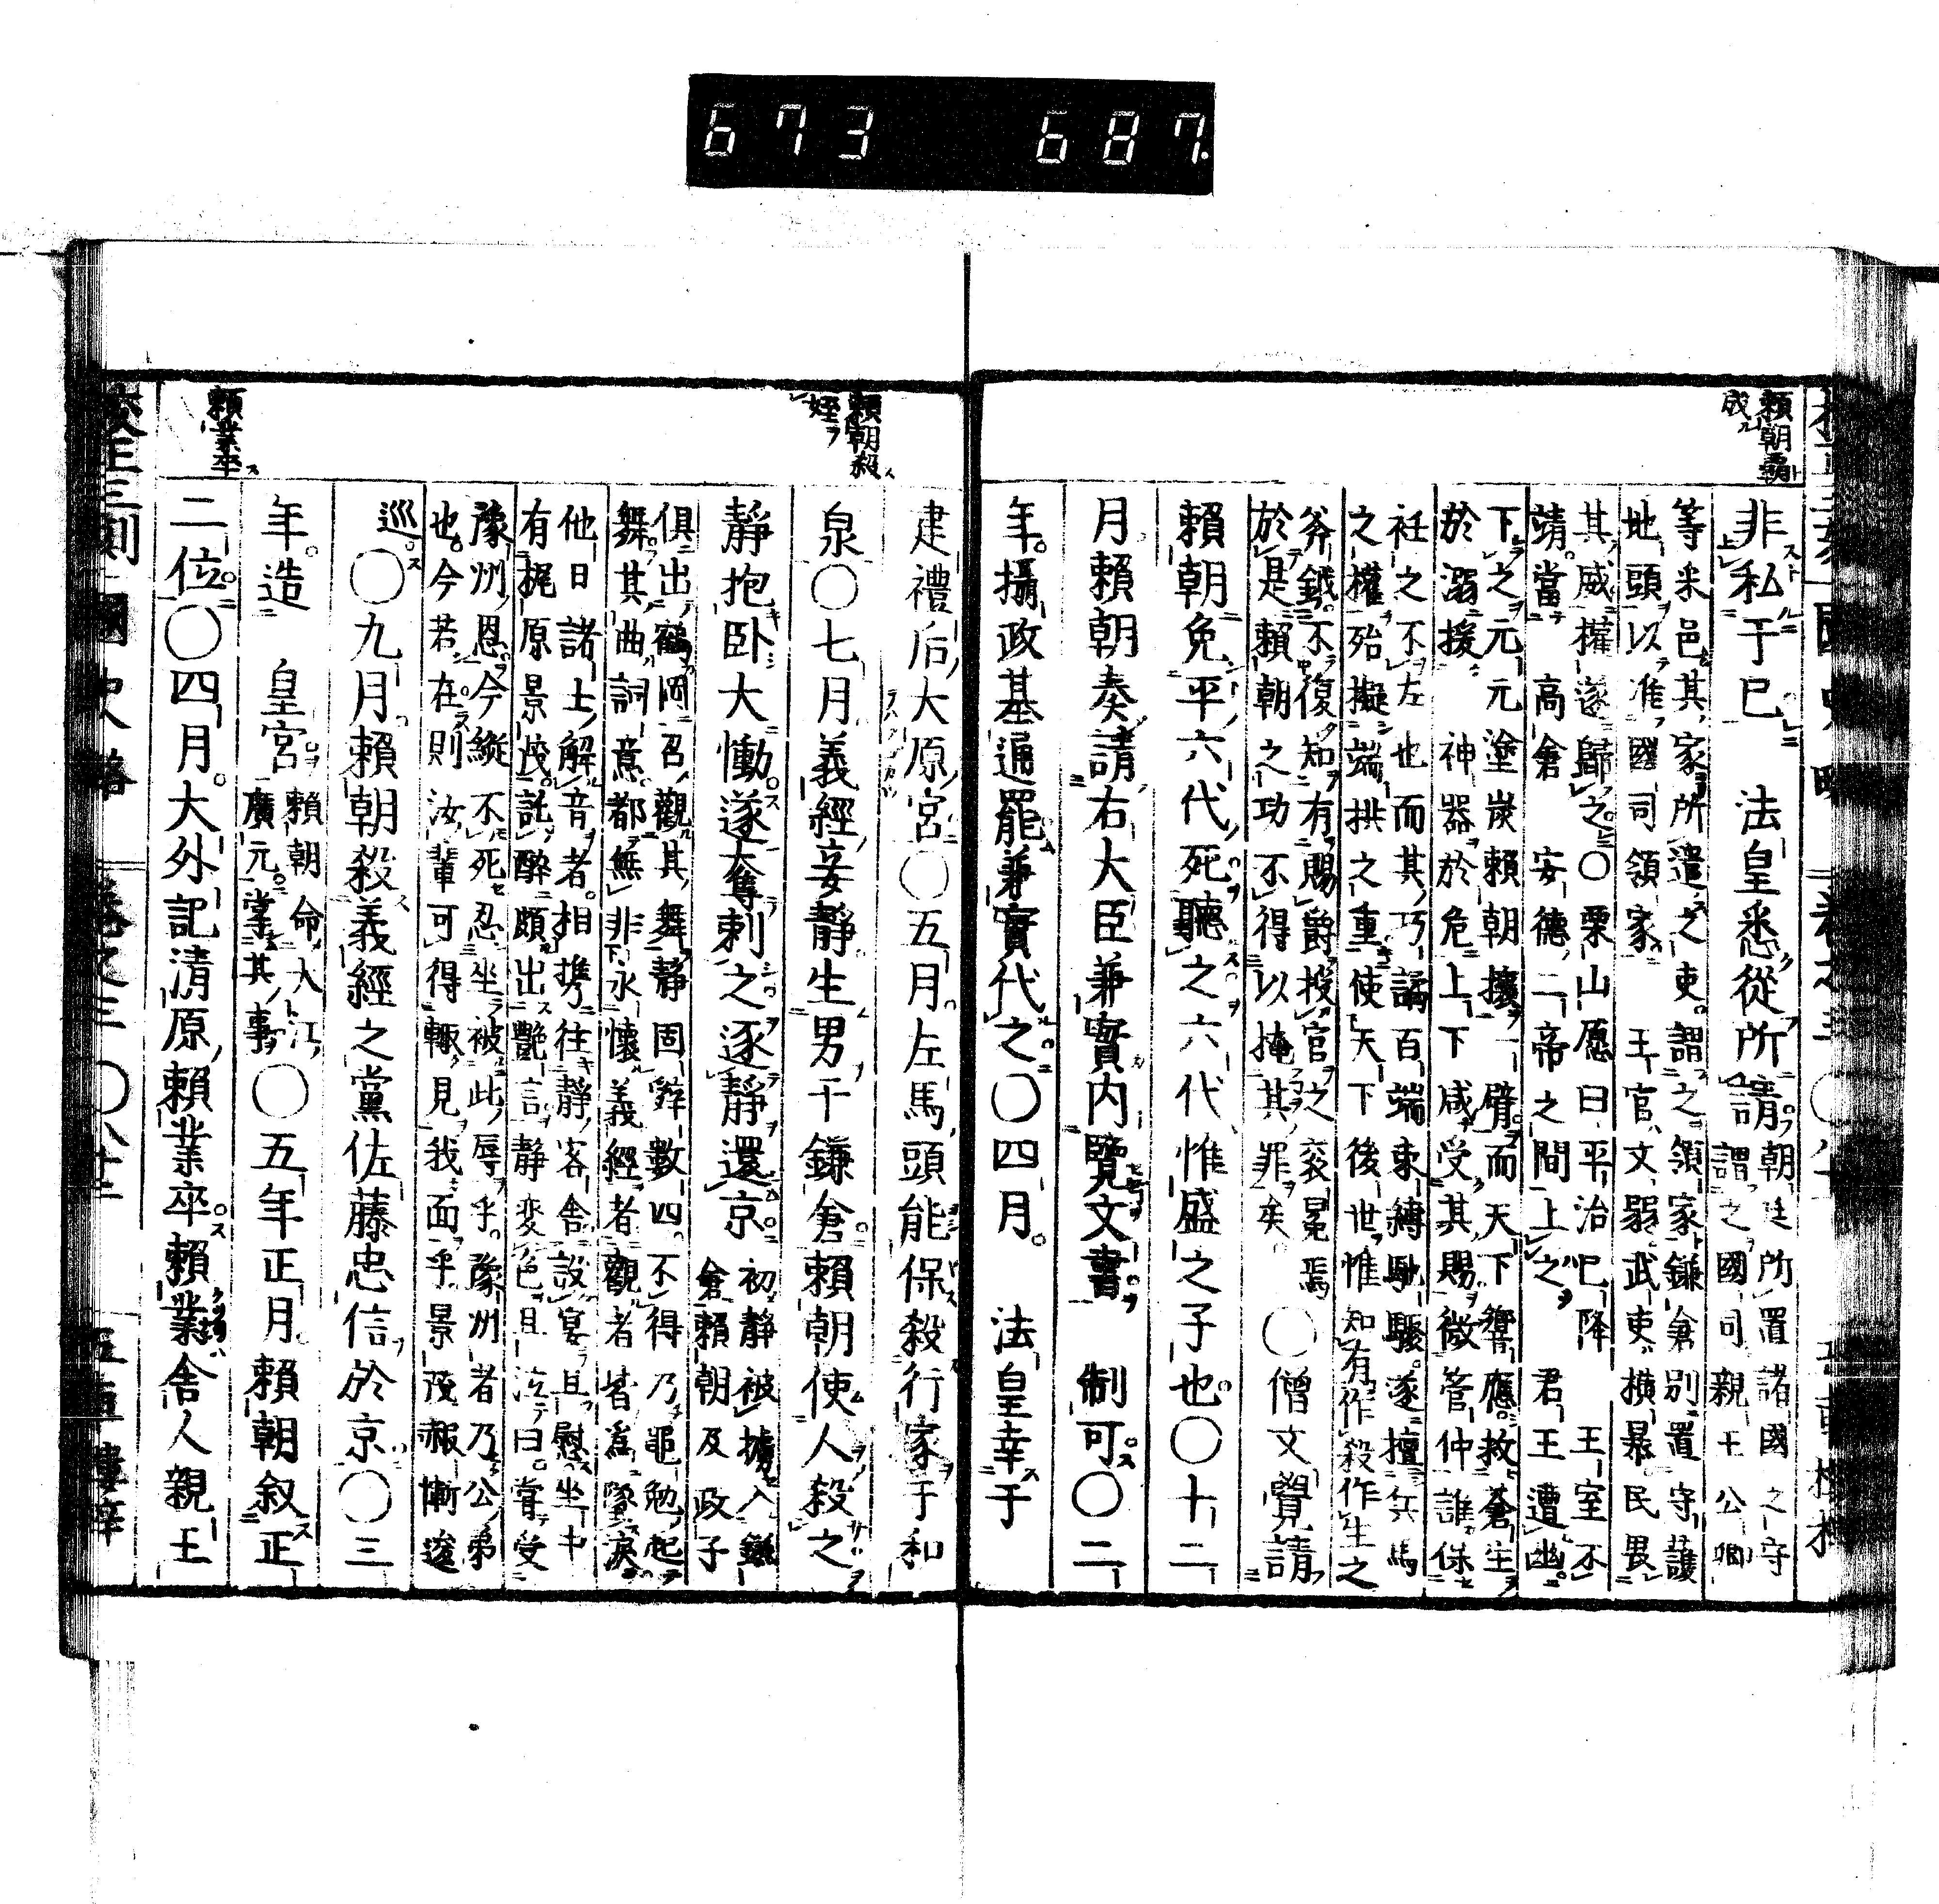 673 687.
頼朝霸
成
非私于已 法皇悉從所請朝廷所置諸國之守
謂之國司親王公卿
等采邑其家所遣之吏謂之領家鎌倉別置守護
地頭以准國司領家 王官文弱武吏横暴民畏
其威權遂歸之〇栗山愿曰平治已降 王室不
靖當 高倉 安德二帝之間上之 君王遭幽
下之元元塗炭頼朝攘一臂而天下響應救蒼生
於溺援 神器於危上下咸受其賜微管仲誰保
衽之不左也而其巧譎百端束縛馳驟遂擅兵馬
之權殆擬端拱之重使天下後世惟知有作殺作生之
斧鉞不復知有賜爵投官之衮冕焉
於是頼朝之功不得以掩其罪矣
〇僧文覺請
頼朝免平六代死聽之六代惟盛之子也〇十二
月頼朝奏請右大臣兼實内覽文書 制可〇二
年攝政基通罷兼實代之〇四月 法皇幸于
頼朝殺
姪
建禮后大原宮〇五月左馬頭能保殺行家于和
泉〇七月義經妾靜生男于鎌倉頼朝使人殺之
靜抱臥大慟遂奪刺之逐靜還京初靜被擄入鎌
倉頼朝及政子
俱出鶴岡召觀其舞靜固辭數四不得乃黽勉起
舞其曲詞意都無非永懷義經者觀者皆爲墜涙
他日諸士解音者相携往靜客舎設宴且慰坐中
有梶原景茂託醉頗出艷言靜変色且泣曰嘗受
豫州恩今縱不死忍坐被此辱乎豫州者乃公弟
也今若在則汝輩可得輙見我面乎景茂赧慚逡
巡〇九月頼朝殺義經之黨佐藤忠信於京〇三
年造 皇宮頼朝命大江
廣元掌其事〇五年正月頼朝叙正
二位〇四月大外記清原頼業卒頼業舎人親王
頼業卒